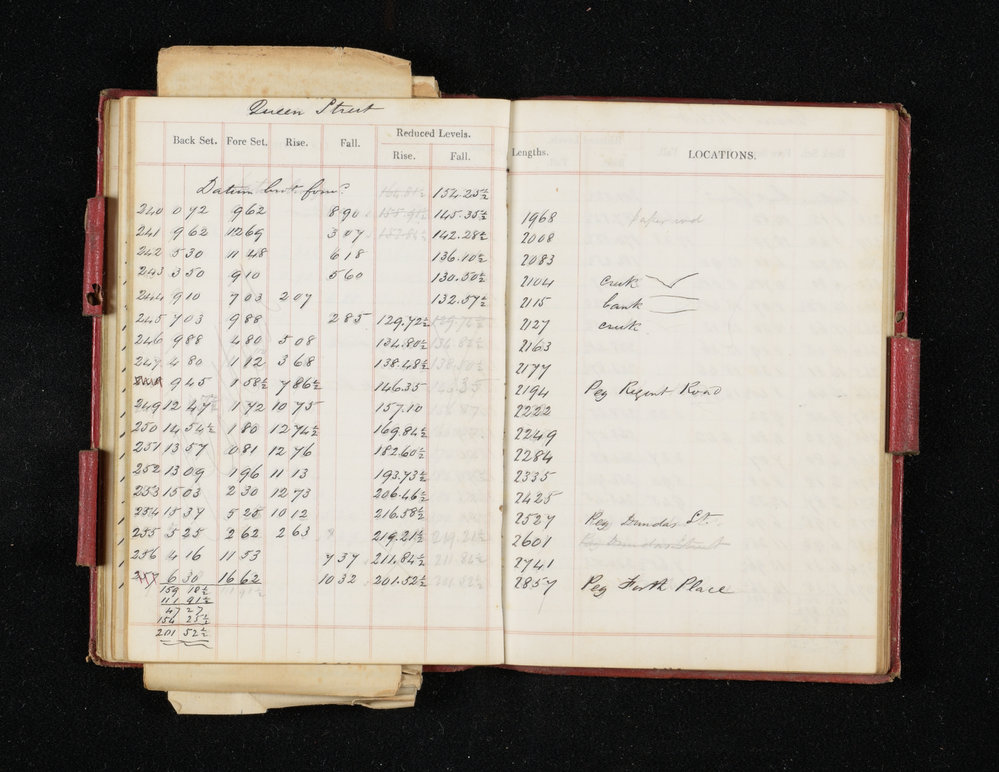 Queen Street
Back Set. Fore Set. Rise. Fall. Reduced Levels. Rise. Fall.
Datum brot. forwd. 154.25½
240 0 72 9 62 8 90 145.35½
241 9 62 12 69 3 07 142.28½
242 5 30 11 48 6 18 136.10½
243 3 50 9 10 5 60 130.50½
244 9 10 7 03 2 07 132.57½
245 7 03 9 88 2 85 129.72½
246 9 88 4 80 5 08 134.80½
247 4 80 1 12 3 68 138.48½
9 45 1 58½ 7 86½ 146.35
249 12 47 1 72 10 75 157.10
250 14 54½ 1 80 12 74½ 169.84½
251 13 57 0 81 12 76 182.60½
252 13 09 1 96 11 13 193.73½
253 15 03 2 30 12 73 206.46½
254 15 37 5 25 10 12 216.58½
255 5 25 2 62 2 63 219.21½
256 4 16 11 53 7 37 211.84½
6 30 16 62 10 32 201.52½
159 18½
111 91½
47 27
154 25½
201 52½
Lengths. LOCATIONS.
1968
2008
2083
2104 creek
2115 bank
2127 creek
2163
2177
2194 Peg Regent Road
2222
2249
2284
2335
2425
2527 Peg Dundas St.
2601 Peg Dundas Street
2741
2857 Peg Forth Place